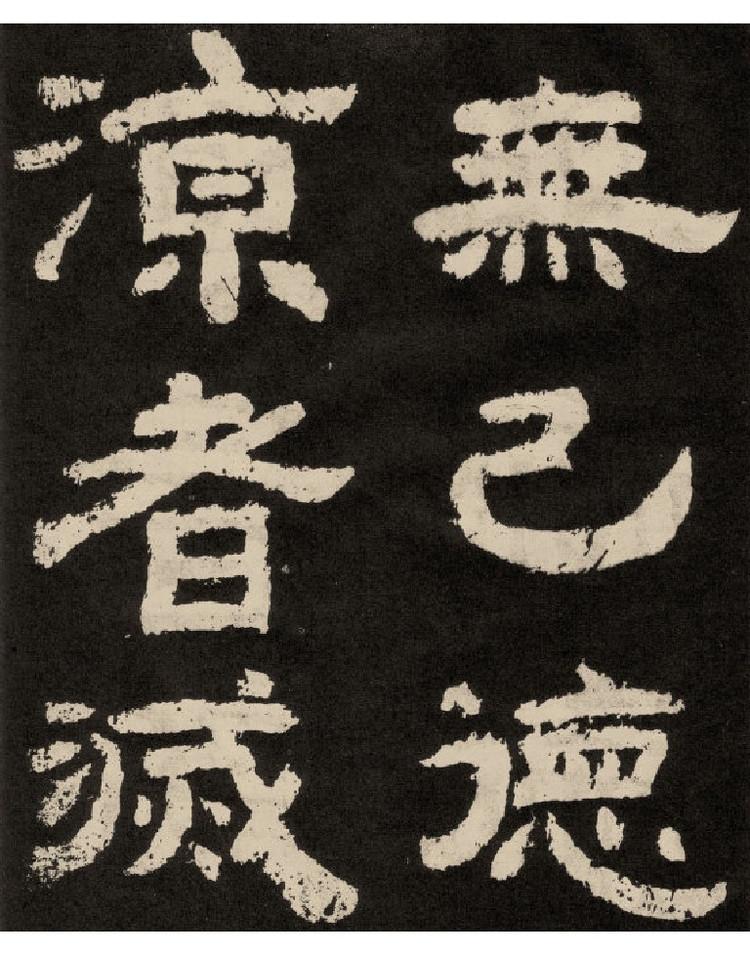 無已德
涼者滅